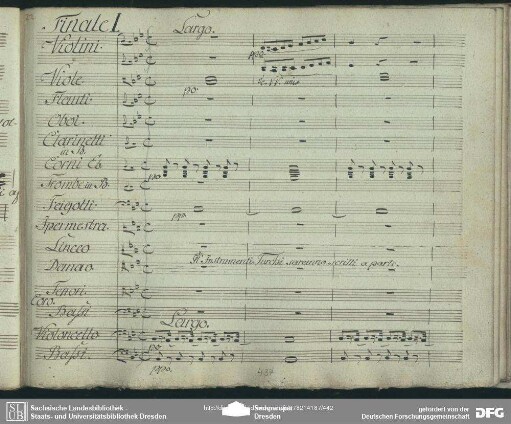 Finale I. Largo.
Violini
Viole
po:
Flauti
Oboi
Clarinetti
in B.
Corni Eb.
Trombe in B.
Feigotti
ppo:
Ipermestra
Linceo
Gl' Instrumenti Turchi saranno scritti a parte.
Danao
Tenori
Coro.
Bassi
Largo.
Violoncello
Bassi
ppo:
Sächsische Landesbibliothek
Staats- und Universitätsbibliothek Dresden
gefördert von der
Deutschen Forschungsgemeinschaft
DFG